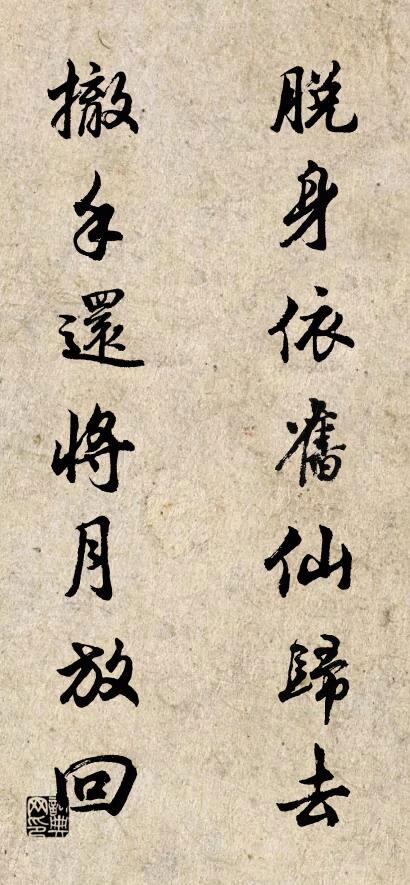 脱身依舊仙歸去
撤手還將月放回